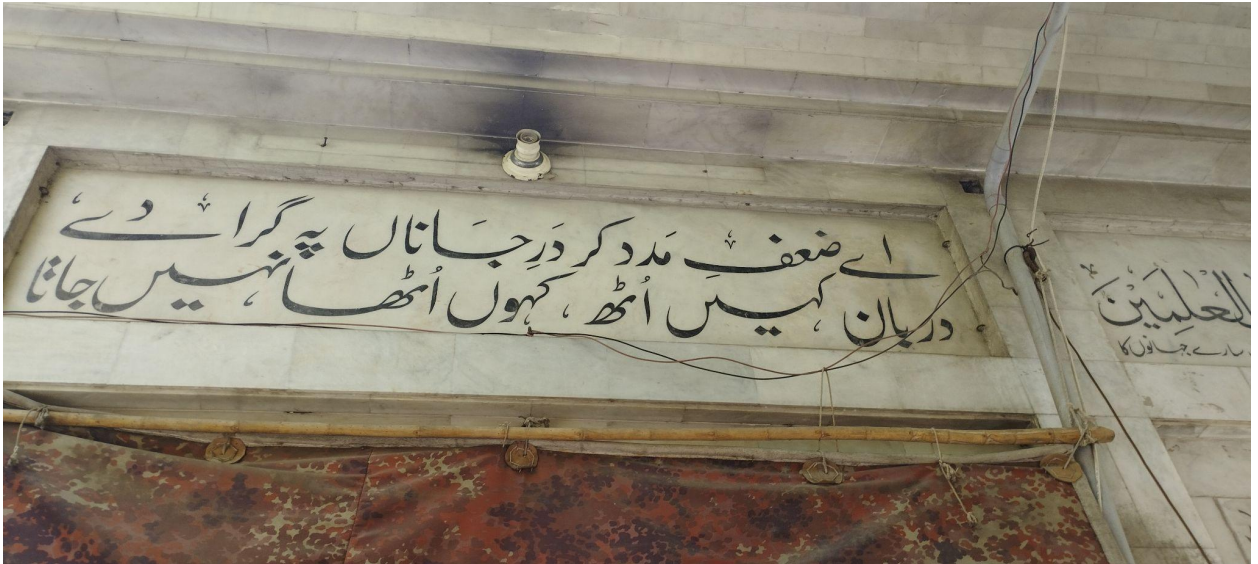 اے ضعفِ مَدد کر دَرِ جَاناں پہ گرا دے
درباں کہیں اُٹھ، کہوں اُٹھا نہیں جاتا
العٰلَمِیْنَ
سارے جہانوں کا